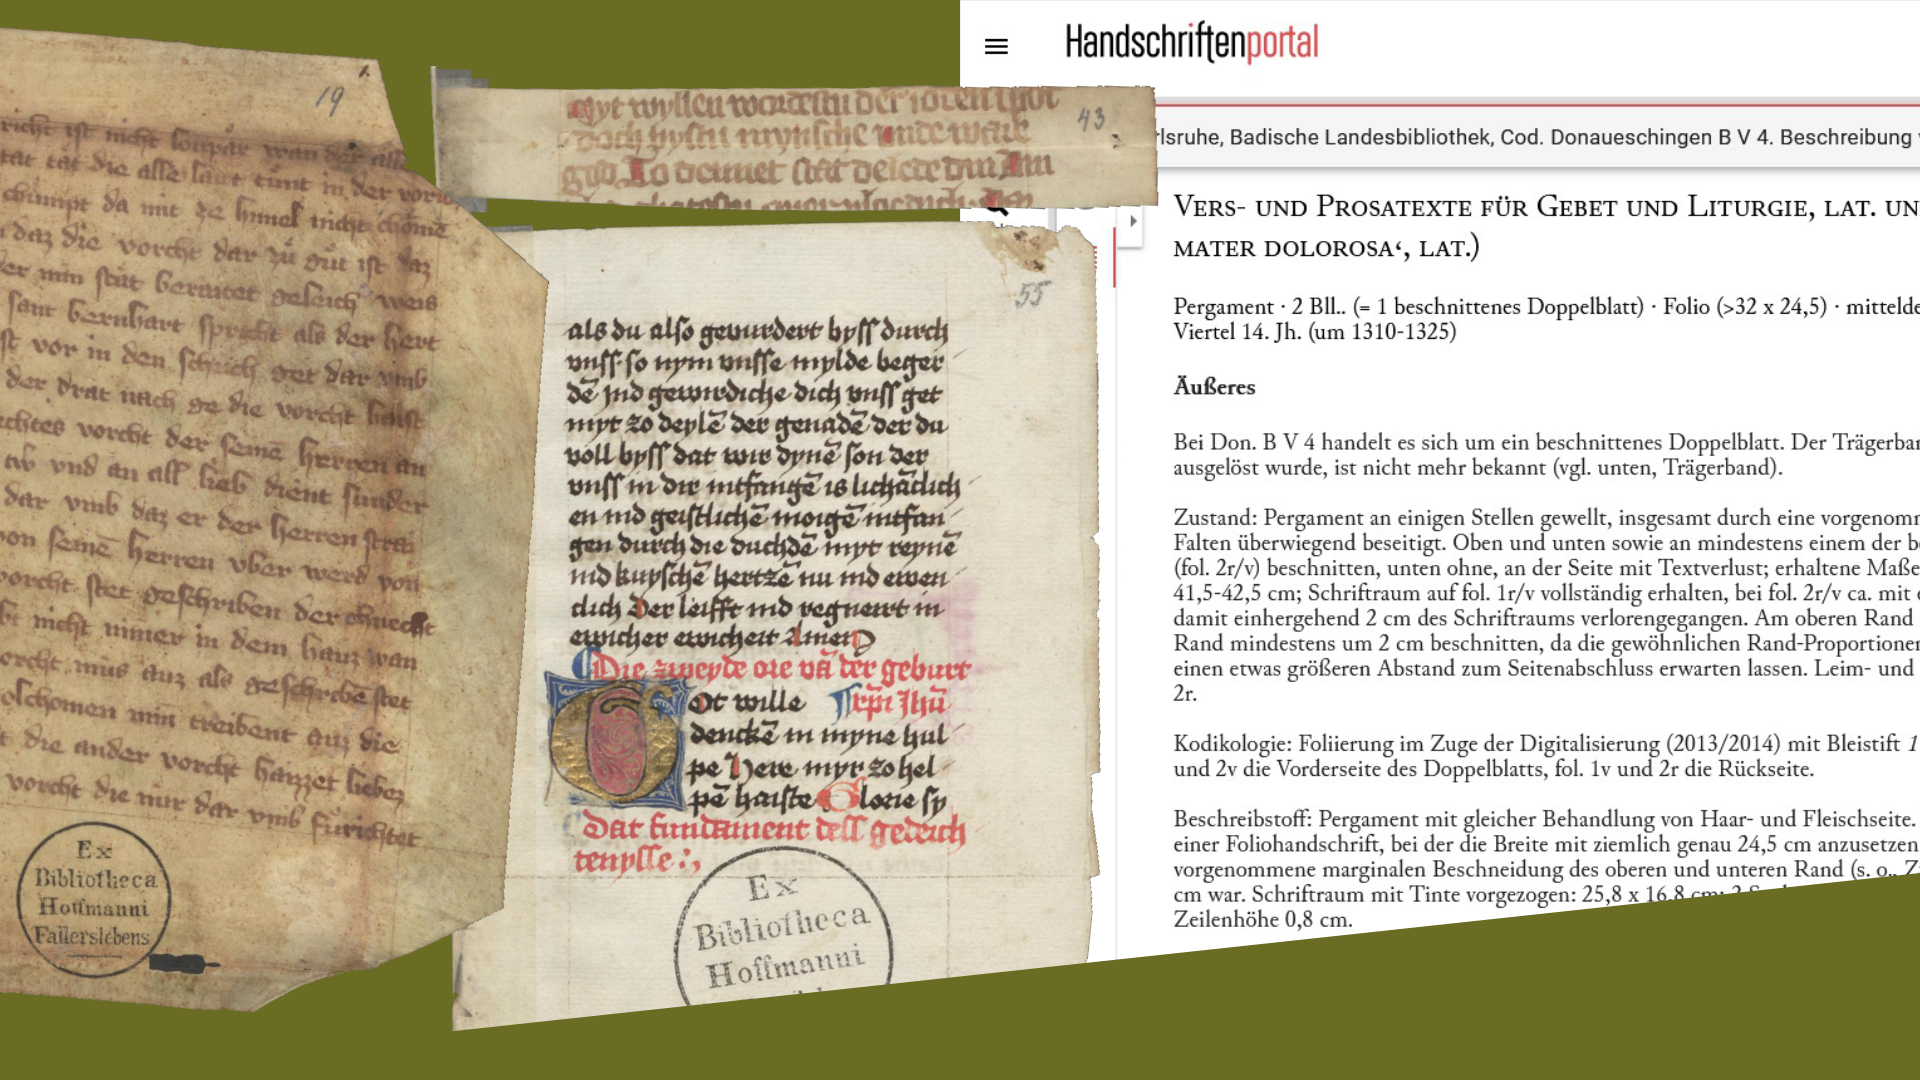 19
richt ist nicht
tat tät die alle laut tünt in der vor
chumpt da mit ze himel nicht chöme
daz die vorcht dar zů gůt ist daz
er min stät beraitet geleich weis
sant bernhart spricht als der hert
st vor in den schrich get dar vmb
der drat nach ge die vorcht
echtes vorcht der seinē herren an
vnd an all lieb dient sunder
dar vmb daz er der herren
von seinē herren vber werd von
vorcht stet geschriben der chnecht
nicht nimer in dem hauz wan
vorcht můs auz als geschribē stet
olchomen min treibent auz die
die ander vorcht haizzet liebez
vorcht die nur dar vmb fürichtet
Ex
Bibliotheca
Hoffmanni
Fallerslebens
43
myt wyllen der
doch bystu mynsche vnde ware
got
55
als du also gewurdert byss durch
vnss so nym vnsse mylde beger
dē ind gewirdiche dich vnss get
myt zo deylē der genadē der du
voll byss dat wir dynē son der
vnss in dir intfangē is lichāclich
en ind geistlichē moigē intfan
gen durch die duchdē myt reynē
ind kuyschē hertzē nu ind ewen
clich Der leifft ind regneirt in
ewicher ewicheit Amen
Die zweyde oie vā der geburt
Got wille xp̄i Jhū
denckē in myne hul
pe Here myr zo hel
pē haiste Glorie sy
Dat fundament dess gedeich
tenysse
Ex
Bibliotheca
Hoffmanni
Handschriftenportal
lsruhe, Badische Landesbibliothek, Cod. Donaueschingen B V 4. Beschreibung
Vers- und Prosatexte für Gebet und Liturgie, lat. un
mater dolorosa‘, lat.)
Pergament · 2 Bll.. (= 1 beschnittenes Doppelblatt) · Folio (>32 x 24,5) · mittelde
Viertel 14. Jh. (um 1310-1325)
Äußeres
Bei Don. B V 4 handelt es sich um ein beschnittenes Doppelblatt. Der Trägerban
ausgelöst wurde, ist nicht mehr bekannt (vgl. unten, Trägerband).
Zustand: Pergament an einigen Stellen gewellt, insgesamt durch eine vorgenomm
Falten überwiegend beseitigt. Oben und unten sowie an mindestens einem der b
(fol. 2r/v) beschnitten, unten ohne, an der Seite mit Textverlust; erhaltene Maße
41,5-42,5 cm; Schriftraum auf fol. 1r/v vollständig erhalten, bei fol. 2r/v ca. mit
damit einhergehend 2 cm des Schriftraums verlorengegangen. Am oberen Rand
Rand mindestens um 2 cm beschnitten, da die gewöhnlichen Rand-Proportionen
einen etwas größeren Abstand zum Seitenabschluss erwarten lassen. Leim- und
2r.
Kodikologie: Foliierung im Zuge der Digitalisierung (2013/2014) mit Bleistift 1
und 2v die Vorderseite des Doppelblatts, fol. 1v und 2r die Rückseite.
Beschreibstoff: Pergament mit gleicher Behandlung von Haar- und Fleischseite.
einer Foliohandschrift, bei der die Breite mit ziemlich genau 24,5 cm anzusetzen
vorgenommene marginalen Beschneidung des oberen und unteren Rand (s. o., Z
cm war. Schriftraum mit Tinte vorgezogen: 25,8 x 16,8 cm; 2
Zeilenhöhe 0,8 cm.